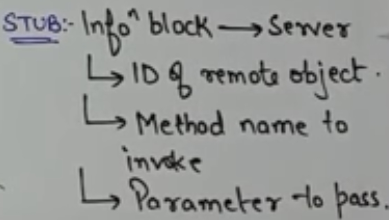 STUB:- Infoⁿ block → Server
↳ ID of remote object.
↳ Method name to
invoke
↳ Parameter to pass.